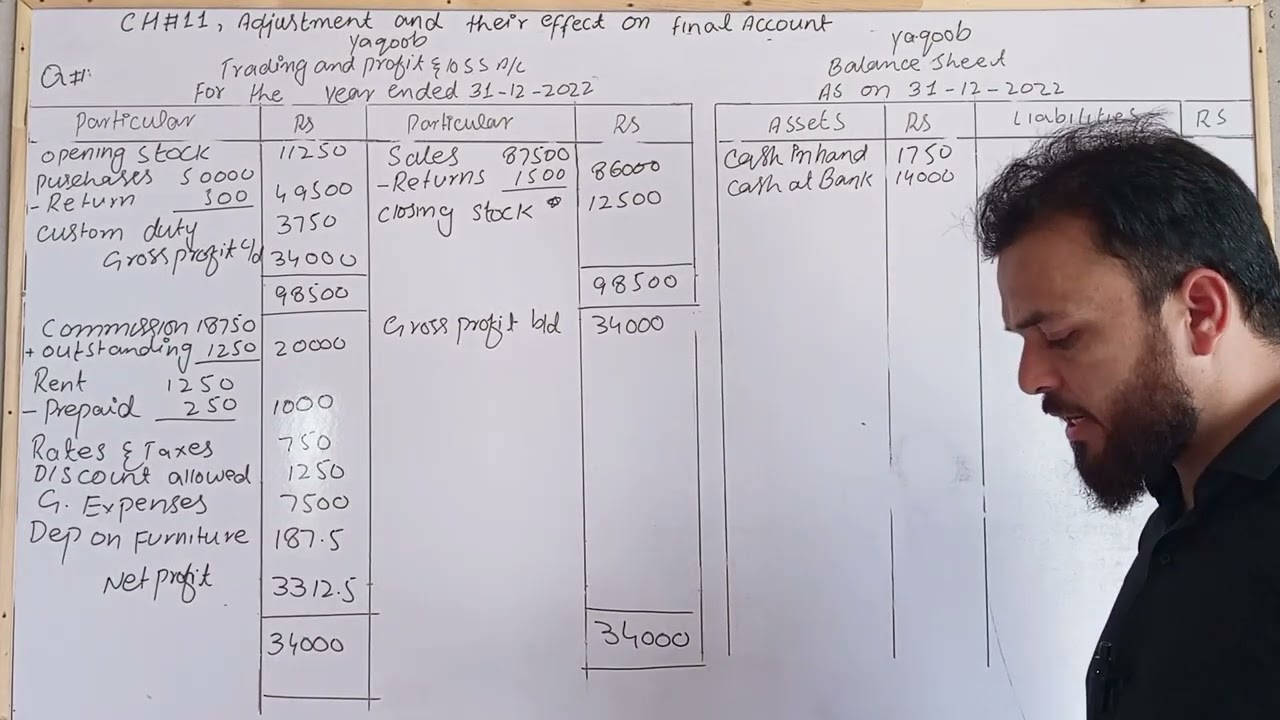 CH#11, Adjustment and their effect on final Account
Yaqoob
Q#:
Trading and profit & loss A/C
For the year ended 31-12-2022
Particular Rs Particular RS
opening stock 11250 Sales 87500
purchases 50000 - Returns 1500 86000
- Return 500 49500 closing stock 12500
custom duty 3750
Gross profit c/d 34000
98500 98500
Commission 18750 Gross profit b/d 34000
+ outstanding 1250 20000
Rent 1250
- Prepaid 250 1000
Rates & Taxes 750
Discount allowed 1250
G. Expenses 7500
Dep on Furniture 187.5
Net profit 3312.5
34000 34000
yaqoob
Balance sheet
As on 31-12-2022
Assets RS Liabilities RS
Cash in hand 1750
Cash at Bank 14000